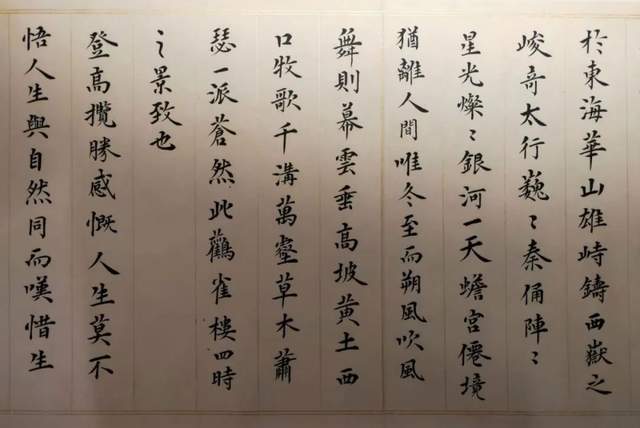 於東海華山雄峙鑄西嶽之
峻奇太行巍〻秦俑陣〻
星光燦〻銀河一天蟾宮僊境
猶離人間唯冬至而朔風吹風
舞則幕雲垂高坡黃土西
口牧歌千溝萬壑草木蕭
瑟一派蒼然此鸛雀樓四時
之景致也
登高攬勝感慨人生莫不
悟人生與自然同而嘆惜生